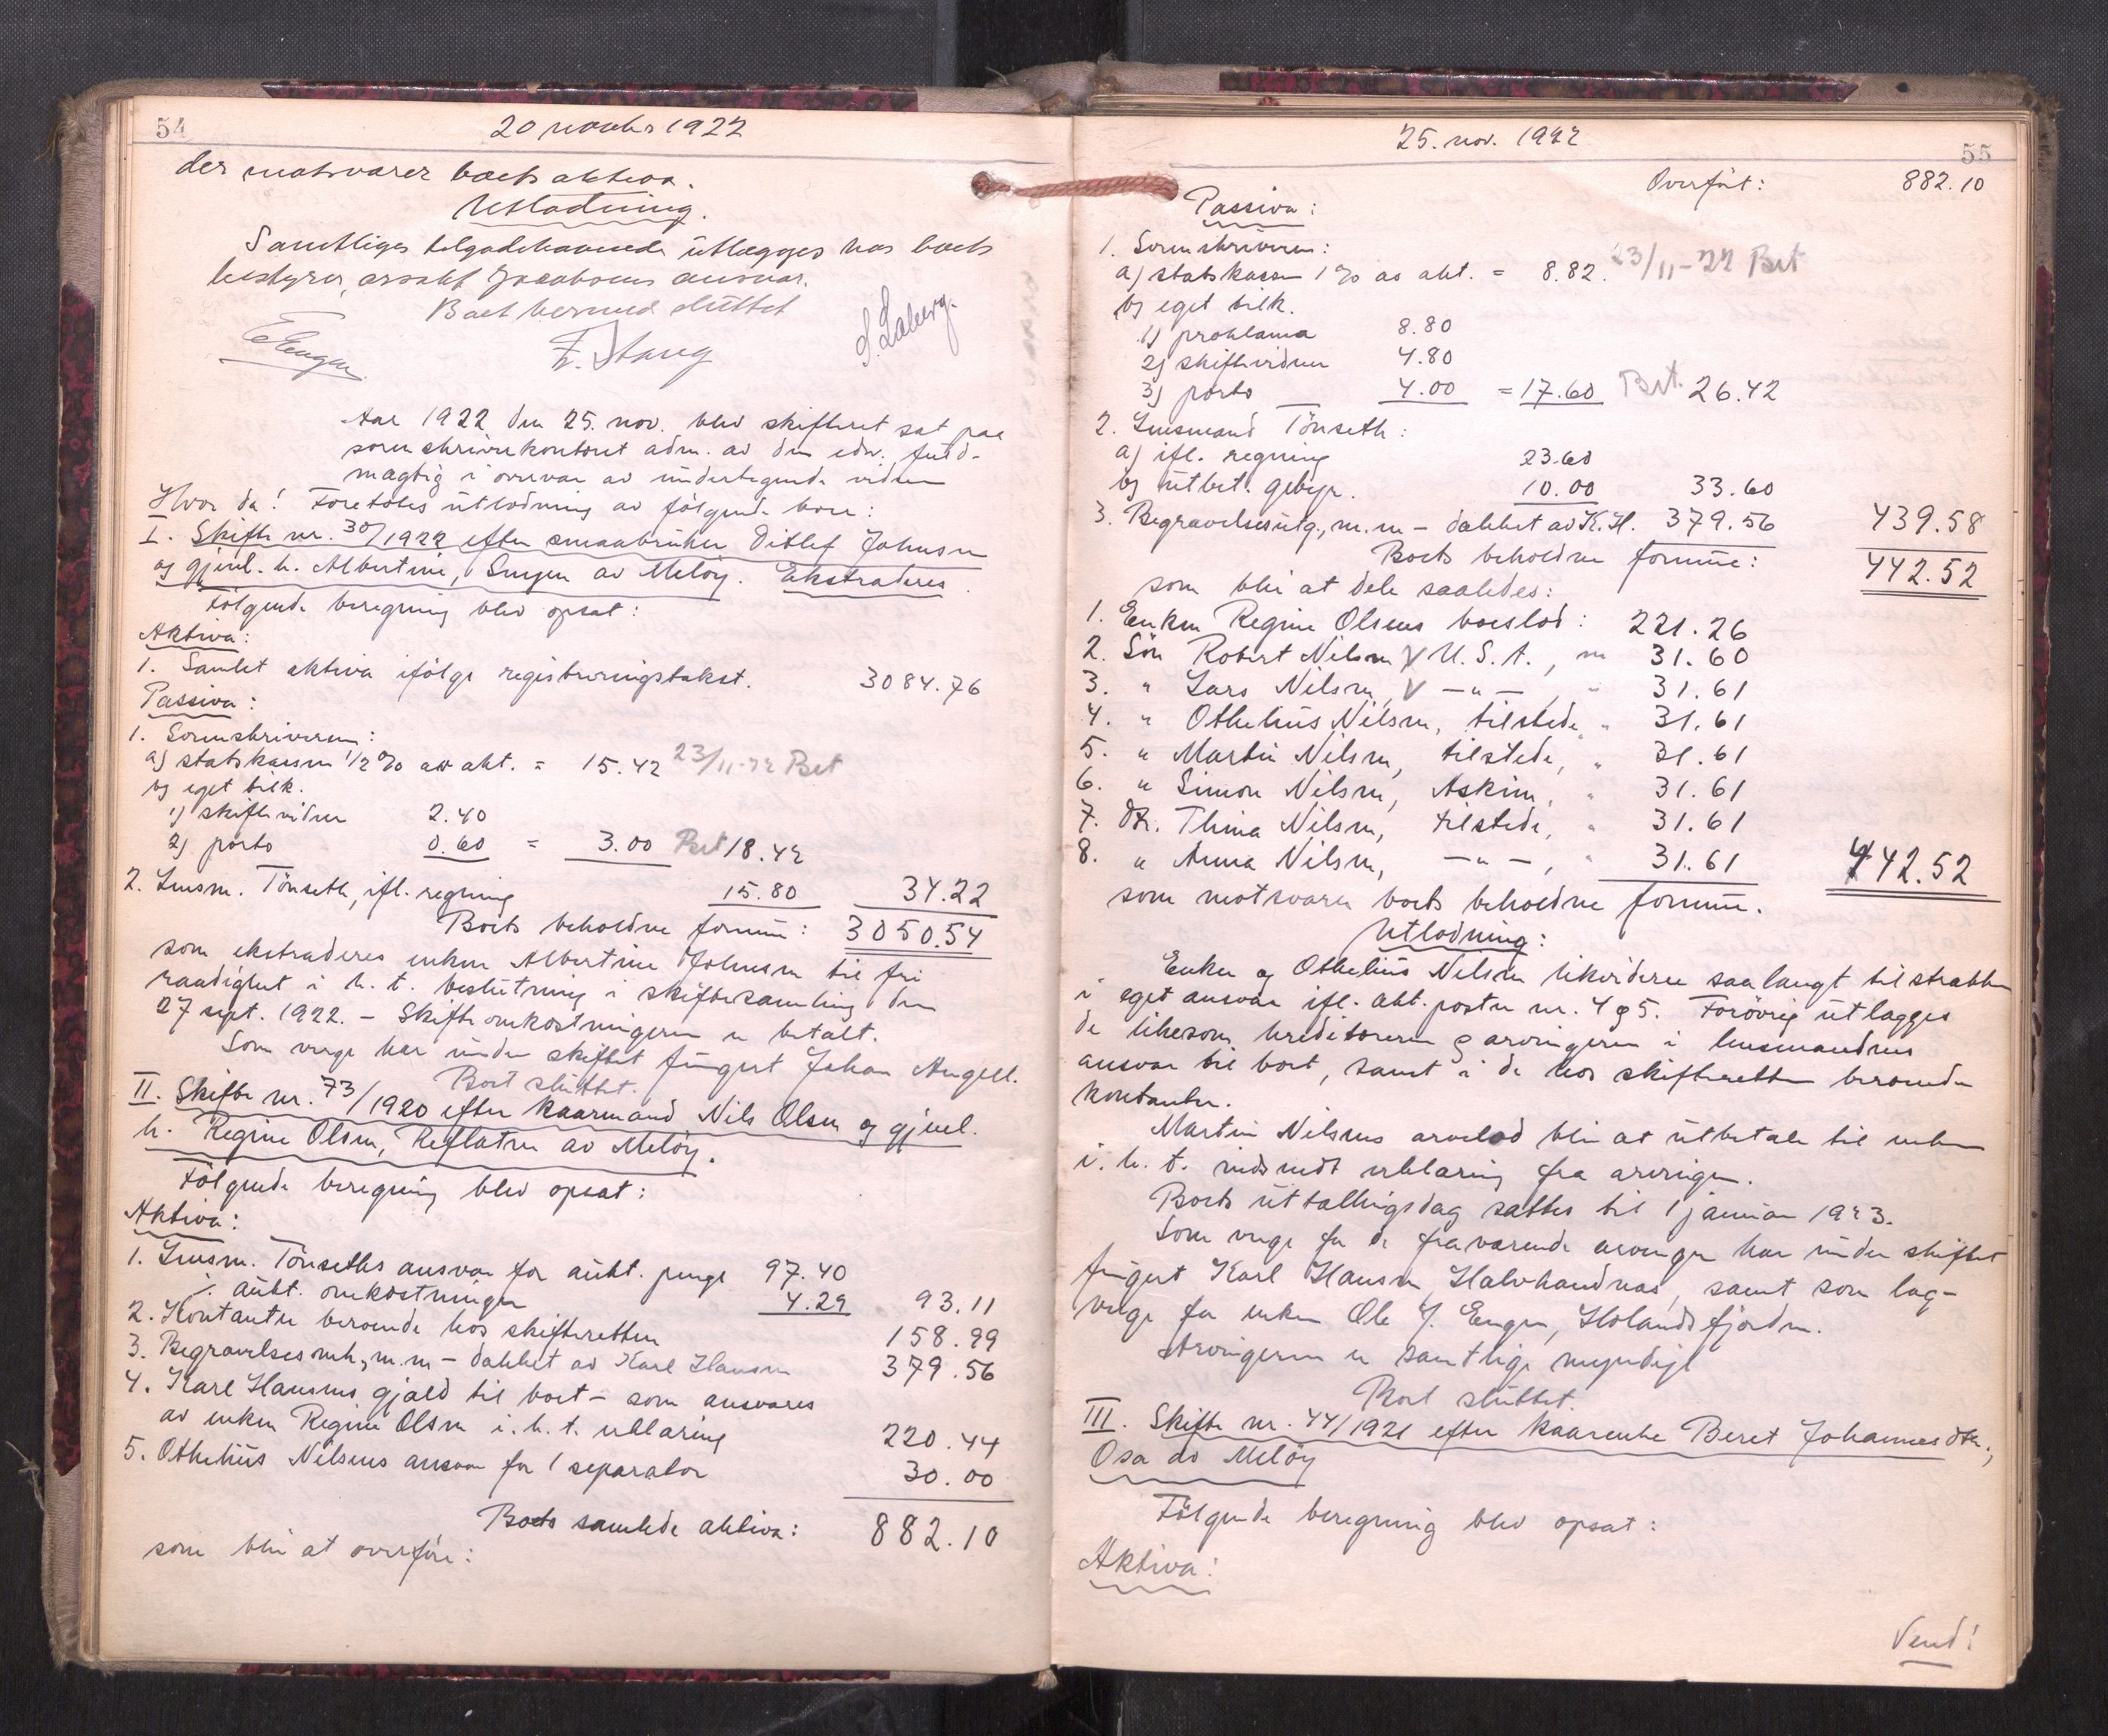 54
20 novbr 1922
der motsvarer boets aktiva.
Utlodning.
Samtliges tilgodehavende utlægges hos boets
bestyrer, orsakf Jacobsens ansvar.
Boet hermed sluttet
E Engen F. Stang S. Laberg.
Aar 1922 den 25. nov. blev skifteret sat paa
sorenskriverkontoret adm. av den edsv. fuld-
mægtig i overvær av undertegnede vidner
Hvor da! Foretokes utlodning av følgende boer:
I. Skifte nr. 30/1922 efter smaabruker Ditlef Johnsen
og gjenl. h. Albertine, Engen av Meløy. Ekstraderes.
Følgende beregning blev opsat:
Aktiva:
1. Samlet aktiva ifølge registreringstakst. 3084.76
Passiva:
1. Sorenskriveren:
a) statskassen 1/2 % av akt. = 15.42 23/11-22 Bet
b) eget tilk.
1) skiftevidner 2.40
2) porto 0.60 = 3.00 Bet 18.42
2. Lensm. Tönseth, ifl. regning 15.80 34.22
Boets beholdne formue: 3050.54
som ekstraderes enken Albertine Johnsen til fri
raadighet i h. t. beslutning i skiftesamling den
27 sept. 1922. - Skifteomkostningerne er betalt.
Som verge har under skiftet fungert Johan Angell.
Boet sluttet.
II. Skifte nr. 73/1920 efter kaarmand Nils Olsen og gjenl.
h. Regine Olsen, Reflaten av Meløy.
Følgende beregning blev opsat:
Aktiva:
1. Lensm. Tönseths ansvar for aukt. penge 97.40
÷ aukt. omkostninger 4.29 93.11
2. Kontanter beroende hos skifteretten 158.99
3. Begravelsesomk, m.m - dækket av Karl Hansen 379.56
4. Karl Hansens gjæld til boet - som ansvares
av enken Regine Olsen i. h. t. erklæring 220.44
5. Othelius Nilsens ansvar for 1 separator 30.00
Boets samlede aktiva: 882.10
som blir at overføre:
25. nov. 1922
55
Overført: 882.10
Passiva:
1. Sorenskriveren:
a) statskassen 1 % av akt. = 8.82. 23/11-22 Bet
b) eget tilk.
1) proklama 8.80
2) skiftevidner 4.80
3) porto 4.00 = 17.60 Bet. 26.42
2. Lensmand Tönseth:
a) ifl. regning 23.60
b) utbet. gebyr. 10.00 33.60
3. Begravelsesutg., m.m - dækket av K.H. 379.56 439.58
Boets beholdne formue: 442.52
som blir at dele saaledes:
1. Enken Regine Olsens boeslod: 221.26
2. Sön Robert Nilsen V U. S. A., 31.60
3. " Lars Nilsen, V -"-, " 31.61
4. " Othelius Nilsen, tilstede " 31.61
5. " Martin Nilsen, tilstede, " 31.61
6. " Simon Nilsen, Askim, " 31.61
7. Dtr. Thina Nilsen, tilstede, " 31.61
8. " Anna Nilsen, -"-, " 31.61 442.52
som motsvarer boets beholdne formue.
Utlodning:
Enken og Othelius Nilsen likviderer saalangt tilstrækker
i eget ansvar ifl. akt. poster nr. 4 og 5. Forövrig utlægges
de likesom kreditorerne og arvingerne i lensmandens
ansvar til boet, samt i de hos skifteretten beroende
kontanter.
Martin Nilsens arvelod blir at utbetale til enken
i. h. t. indsendt erklæring fra arvingen.
Boets uttællingsdag sættes til 1 januar 1923.
Som verge for de fraværende arvinger har under skiftet
fungert Karl Hansen, Halvhandnes, samt som lag-
verge for enken Ole J. Engen, Holandsfjorden.
Arvingerne er samtlige myndige
Boet sluttet.
III. Skifte nr. 44/1921 efter kaarenke Beret Johannesdtr,
Osa av Meløy
Følgende beregning blev opsat:
Aktiva:
Vend!